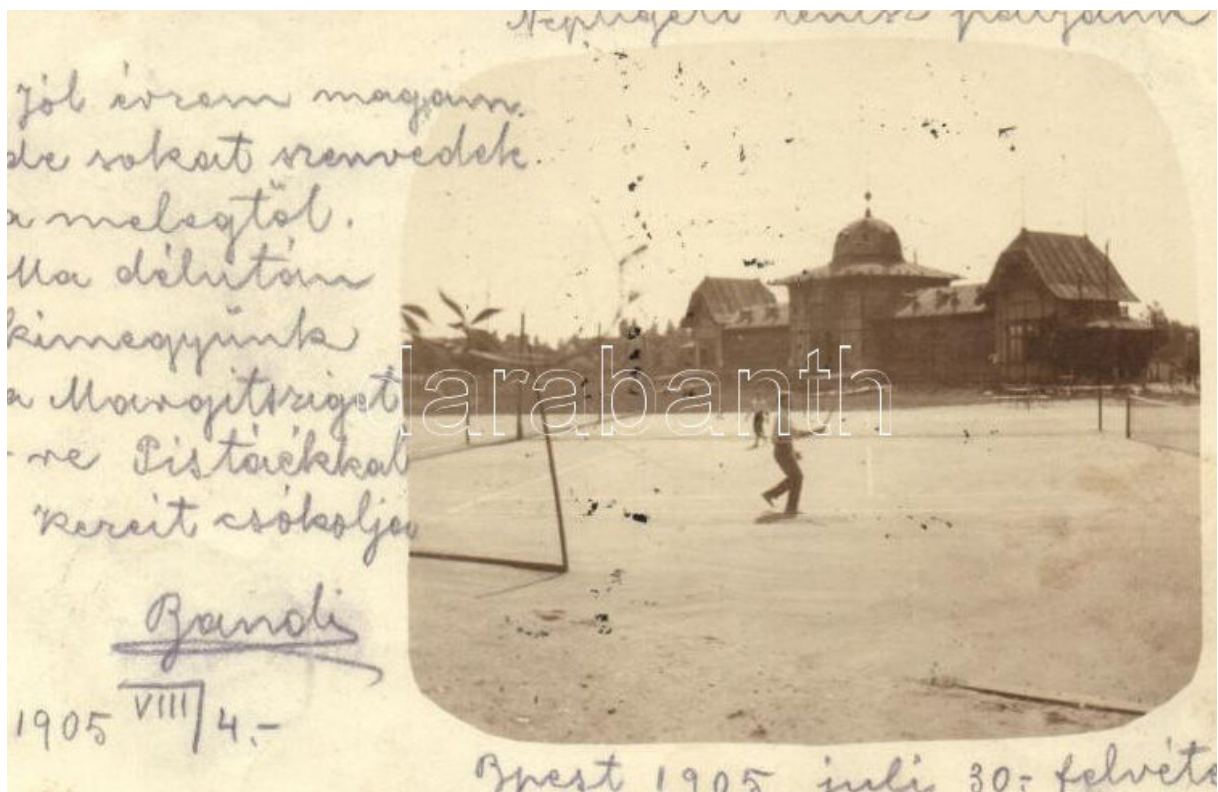 Népligeti tenisz pályánk
Jól érzem magam,
de sokat szenvedek
a melegtől.
Ma délután
kimegyünk
a Margitsziget
-re Pistáékkal
Kezeit csókolja
Bandi
1905 VIII/4.-
Bpest 1905 juli 30-i felvéte
darabanth